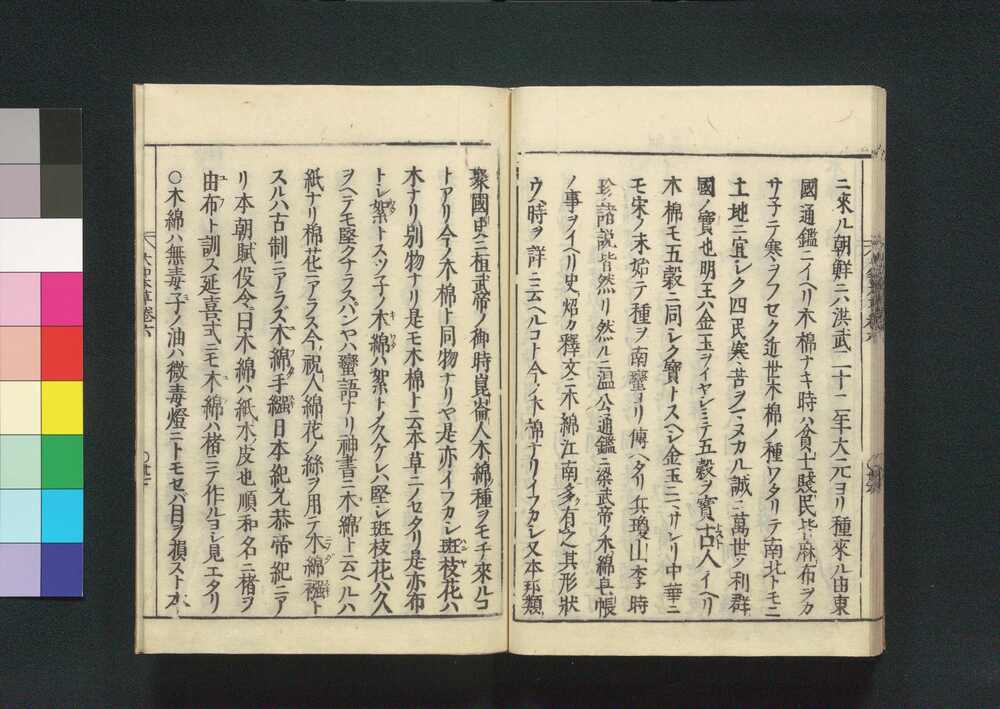 ニ來ル朝鮮ニハ洪武二十二年大元ヨリ種來ル由東
國通鑑ニイヘリ木棉ナキ時ハ貧士賤民皆麻布ヲカ
サ子テ寒ヲフセク近世木棉ノ種ワタリテ南北トモニ
土地ニ宜シク四民寒苦ヲマヌカル誠ニ萬世ヲ利群
國ノ寶也明王ハ金玉ヲイヤシミテ五穀ヲ寶古人イヘリ
木棉モ五穀ニ同シク寶トスヘシ金玉ニマサレリ中華ニ
モ宋ノ末始テ種ヲ南蠻ヨリ傳ヘタリ兵瓊山李時
珍諸說皆然リ然ルニ温公通鑑ニ梁武帝ノ木綿皂帳
ノ事ヲイヘリ史炤カ釋文ニ木綿江南多有之其形狀
ウヽ時ヲ詳ニ云ヘルコト今ノ木綿ナリイフカシ又本邦類
聚國史ニ桓武帝ノ御時崑崙人木綿ノ種ヲモチ來ルコ
トアリ今ノ木棉ト同物ナリヤ是亦イフカシ班枝花ハ
木ナリ別物ナリ是モ木棉ト云本草ニノセタリ是亦布
トシ絮トスツ子ノ木綿ハ絮トノ久ケレハ堅シ班枝花ハ久
ヲヘテモ堅クナラスパンヤハ蠻語ナリ神書ニ木綿ト云ヘルハ
紙ナリ棉花ニアラス今祝人綿花ノ絲ヲ用テ木綿襁ト
スルハ古制ニアラス木綿手繦日本紀允恭帝紀ニア
リ本朝賦役令曰木綿ハ紙木ノ皮也順和名ニ楮ヲ
由布ト訓ス延喜式ニモ木綿ハ楮ニテ作ルヨシ見エタリ
○木綿ハ無毒子ノ油ハ微毒燈ニトモセバ目ヲ損スト本
大和本草卷六